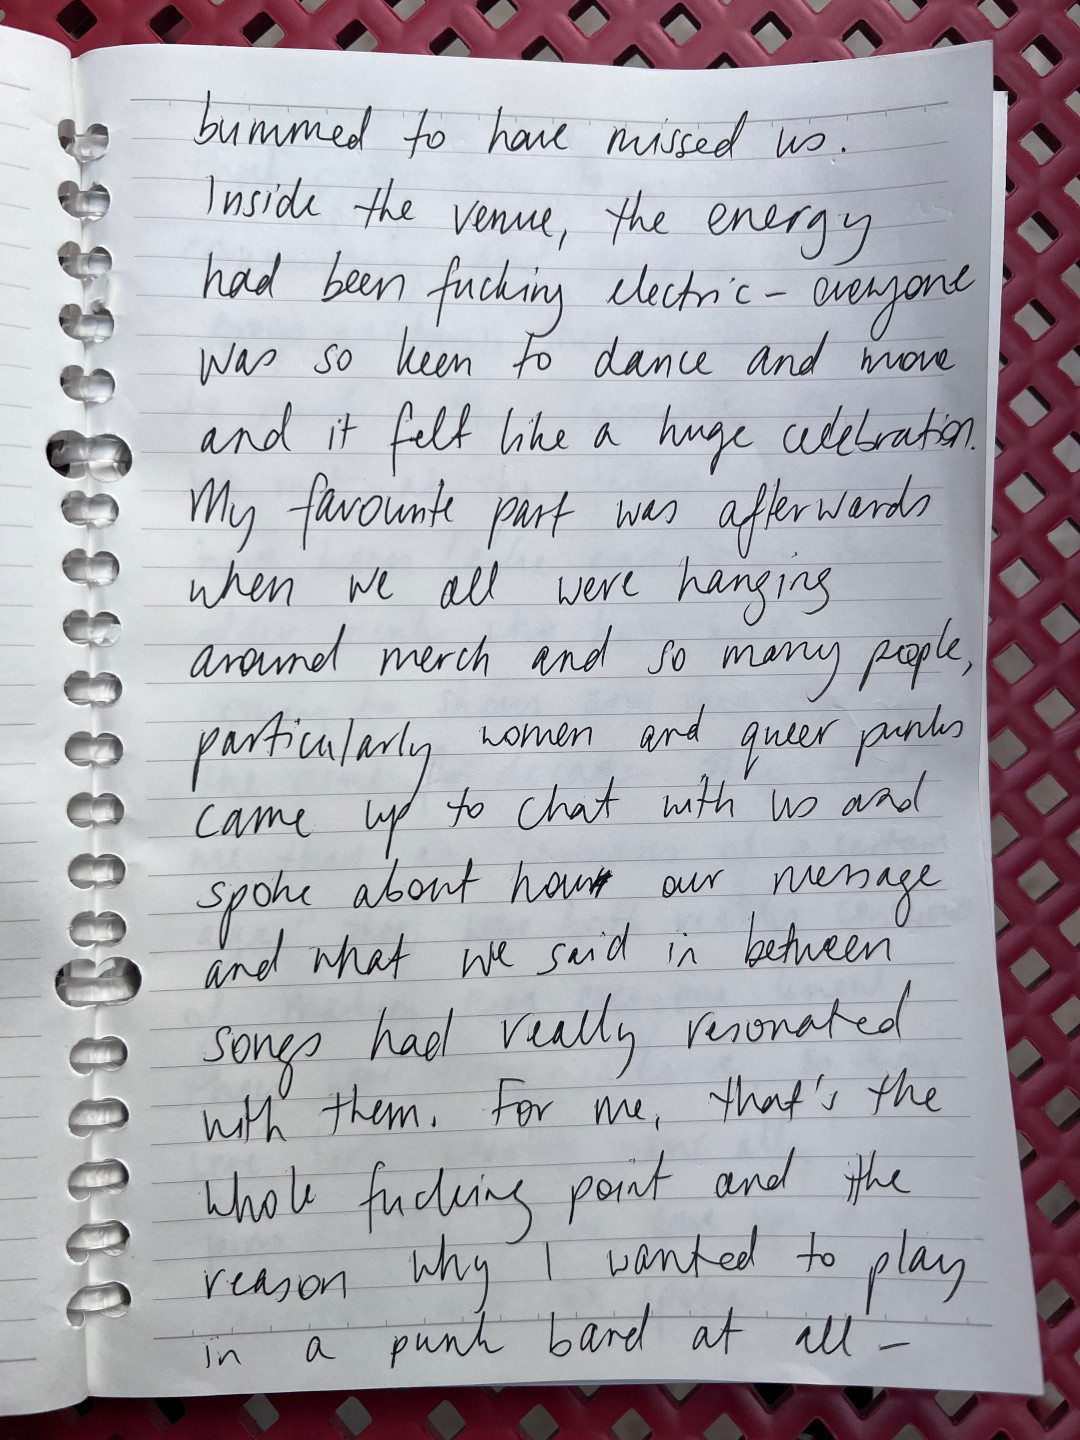 bummed to have missed us.
Inside the venue, the energy
had been fucking electric - everyone
was so keen to dance and move
and it felt like a huge celebration.
My favourite part was afterwards
when we all were hanging
around merch and so many people,
particularly women and queer punks
came up to chat with us and
spoke about how our message
and what we said in between
songs had really resonated
with them. For me, that's the
whole fucking point and the
reason why I wanted to play
in a punk band at all -